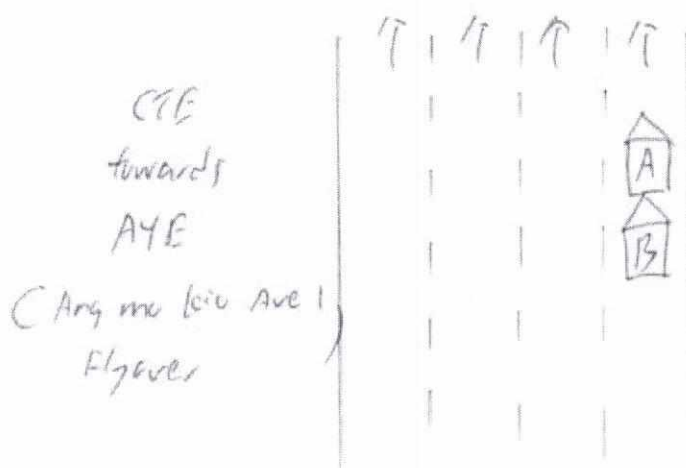 CTE
towards
AYE
(Ang mo kio Ave 1)
Flyover
A
B